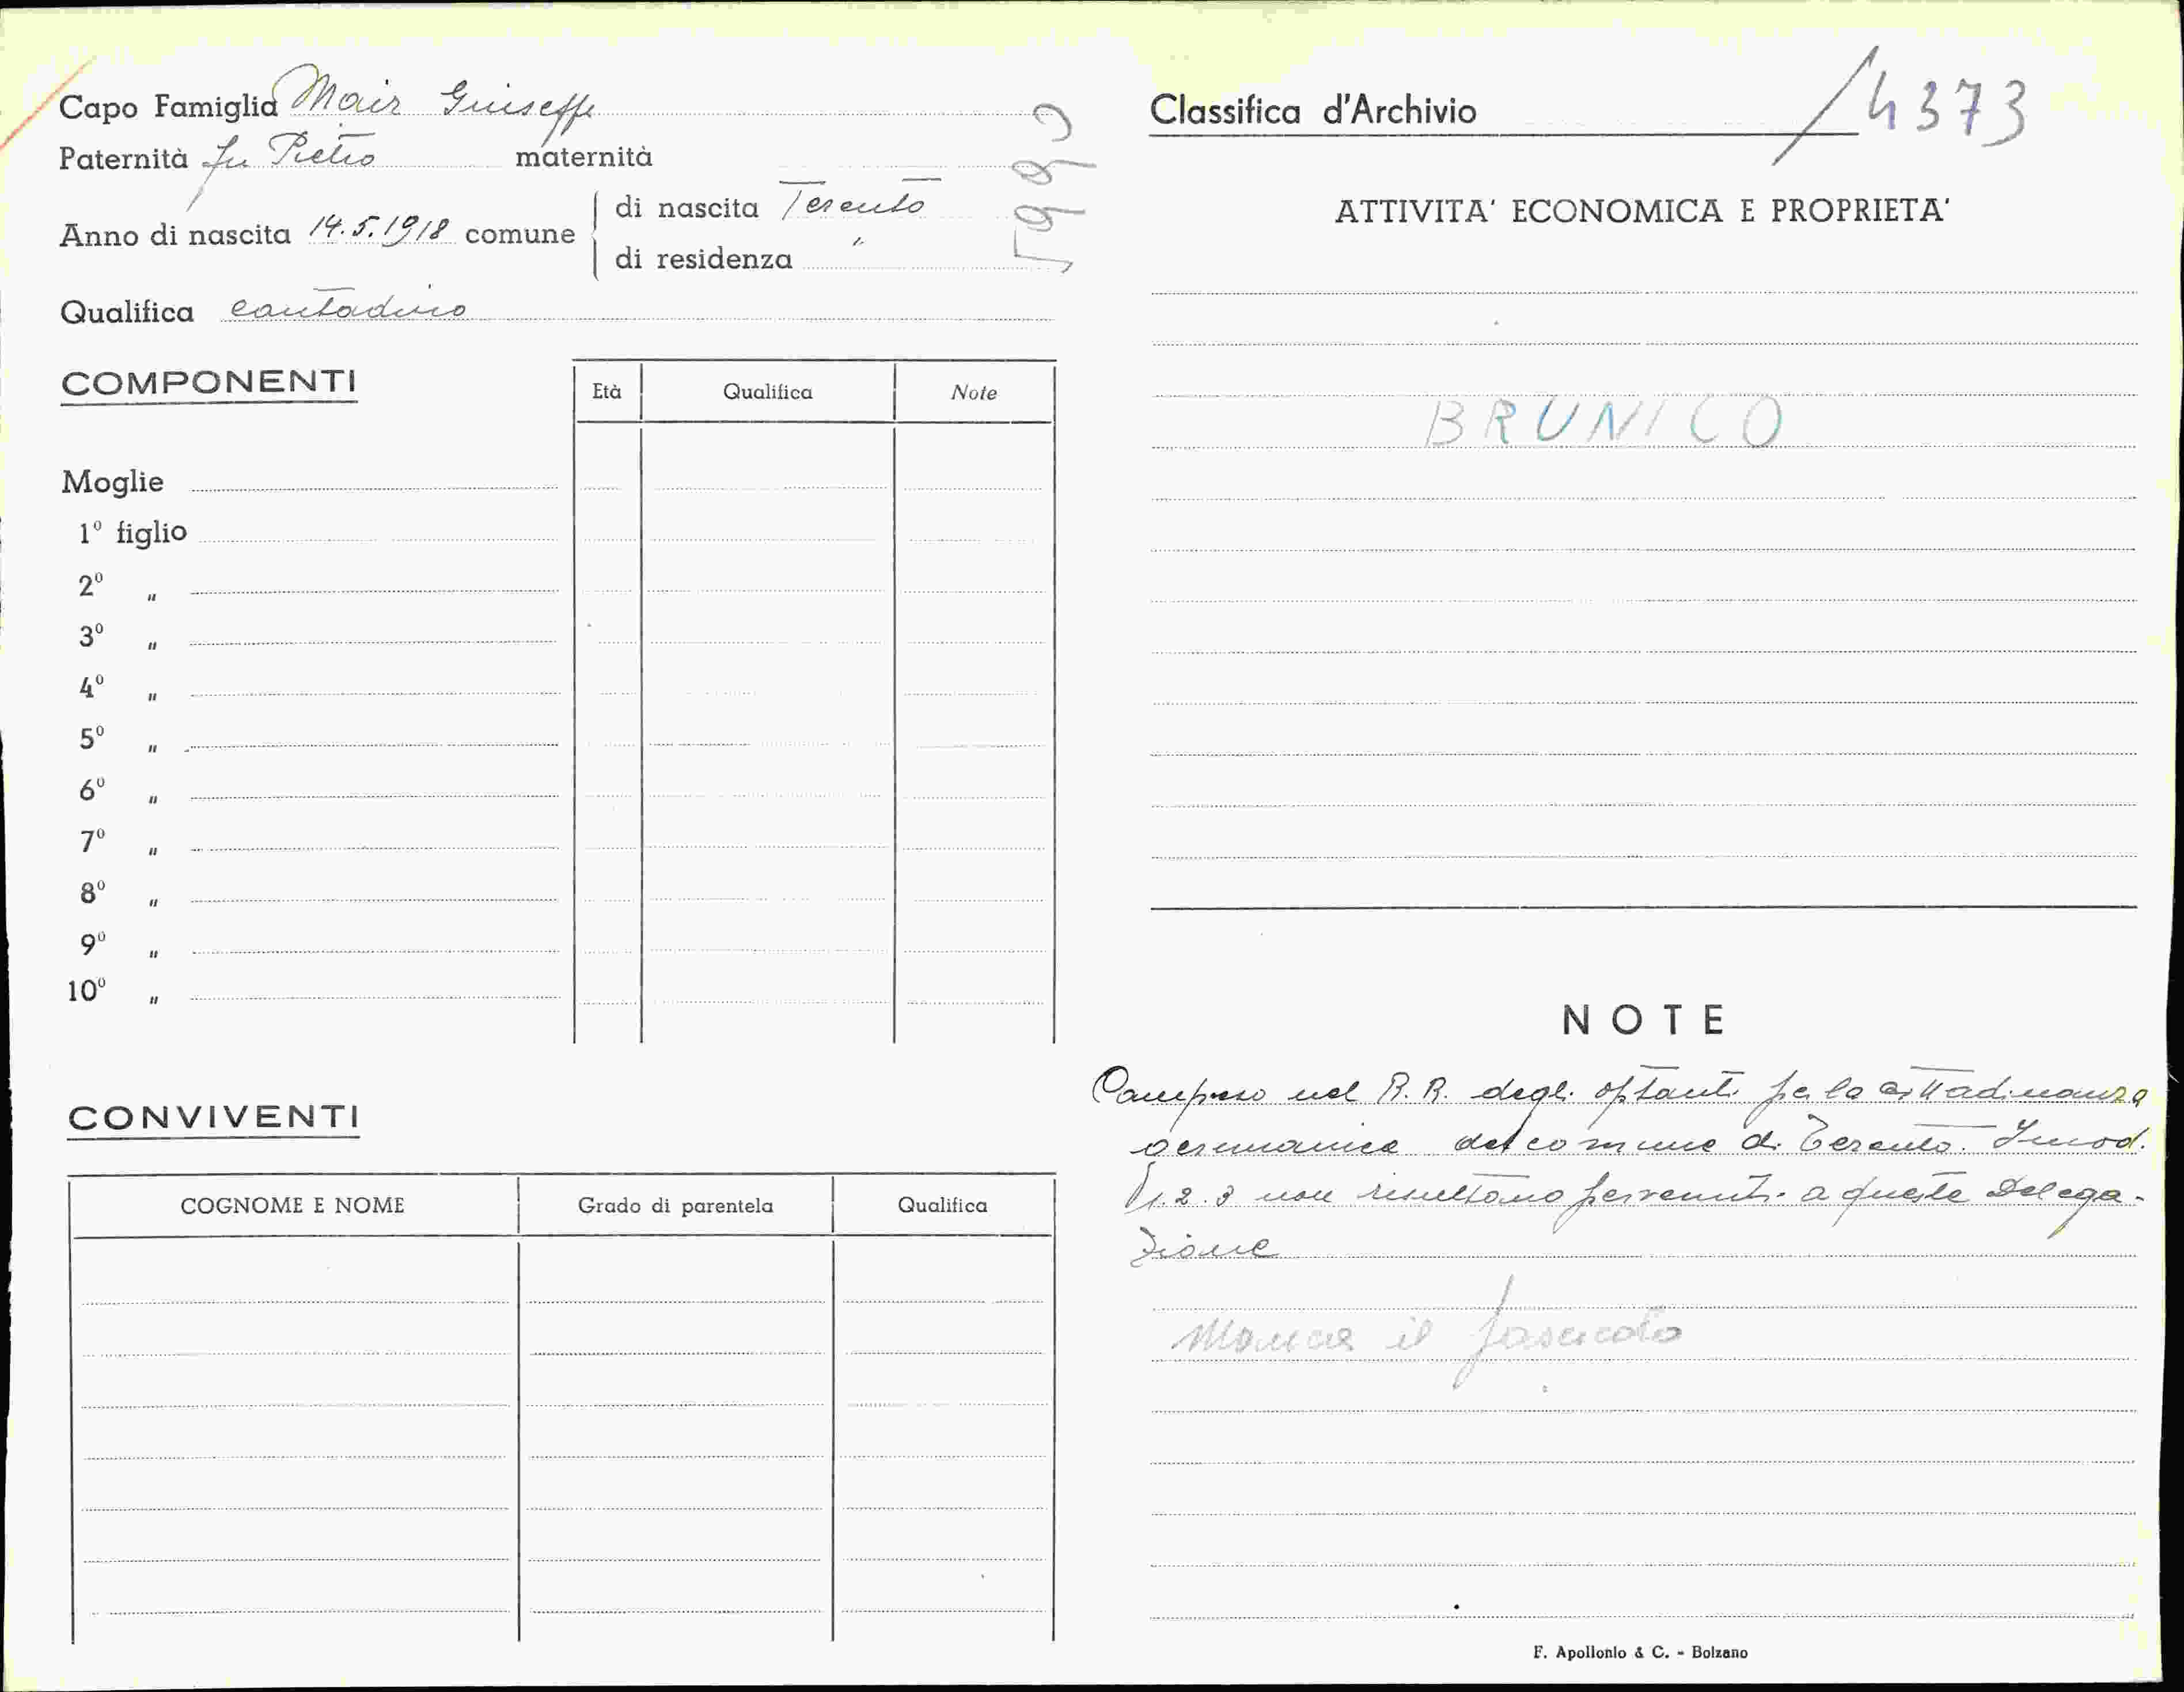 Capo Famiglia Mair Giuseppe
Paternità fu Pietro maternità
Anno di nascita 14.5.1918 comune
di nascita Terento
di residenza "
Qualifica contadino
COMPONENTI
Età Qualifica Note
Moglie
1º figlio
2º "
3º "
4º "
5º "
6º "
7º "
8º "
9º "
10º "
CONVIVENTI
COGNOME E NOME Grado di parentela Qualifica
Classifica d'Archivio /4373
ATTIVITA' ECONOMICA E PROPRIETA'
BRUNICO
NOTE
Compreso nel R.R. degli optanti per la cittadinanza
germanica del comune di Terento. I mod.
1.2.3 non risultano pervenuti a queste Delega-
zione
Manca il fascicolo
F. Apollonio & C. - Bolzano